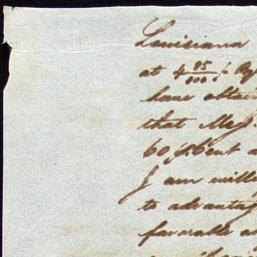 Louisiana
at 4 95/000
have obtain
that Mess
60 p Cent a
I am will
to advantag
favorable a